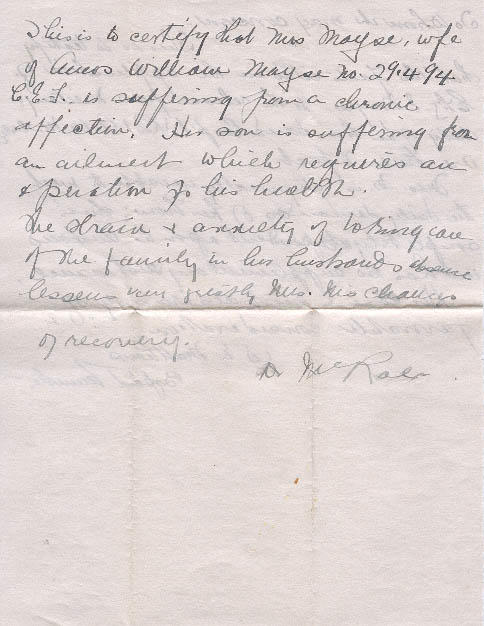 This is to certify that Mrs Mayse, wife
of Amos William Mayse no. 29.4.94
C.E.F. is suffering from a chronic
affection. Her son is suffering from
an ailment which requires an
operation for his health.
The drain & anxiety of taking care
of the family in her husbands absence
lessens very greatly Mrs. chances
of recovery.
Dr McRae